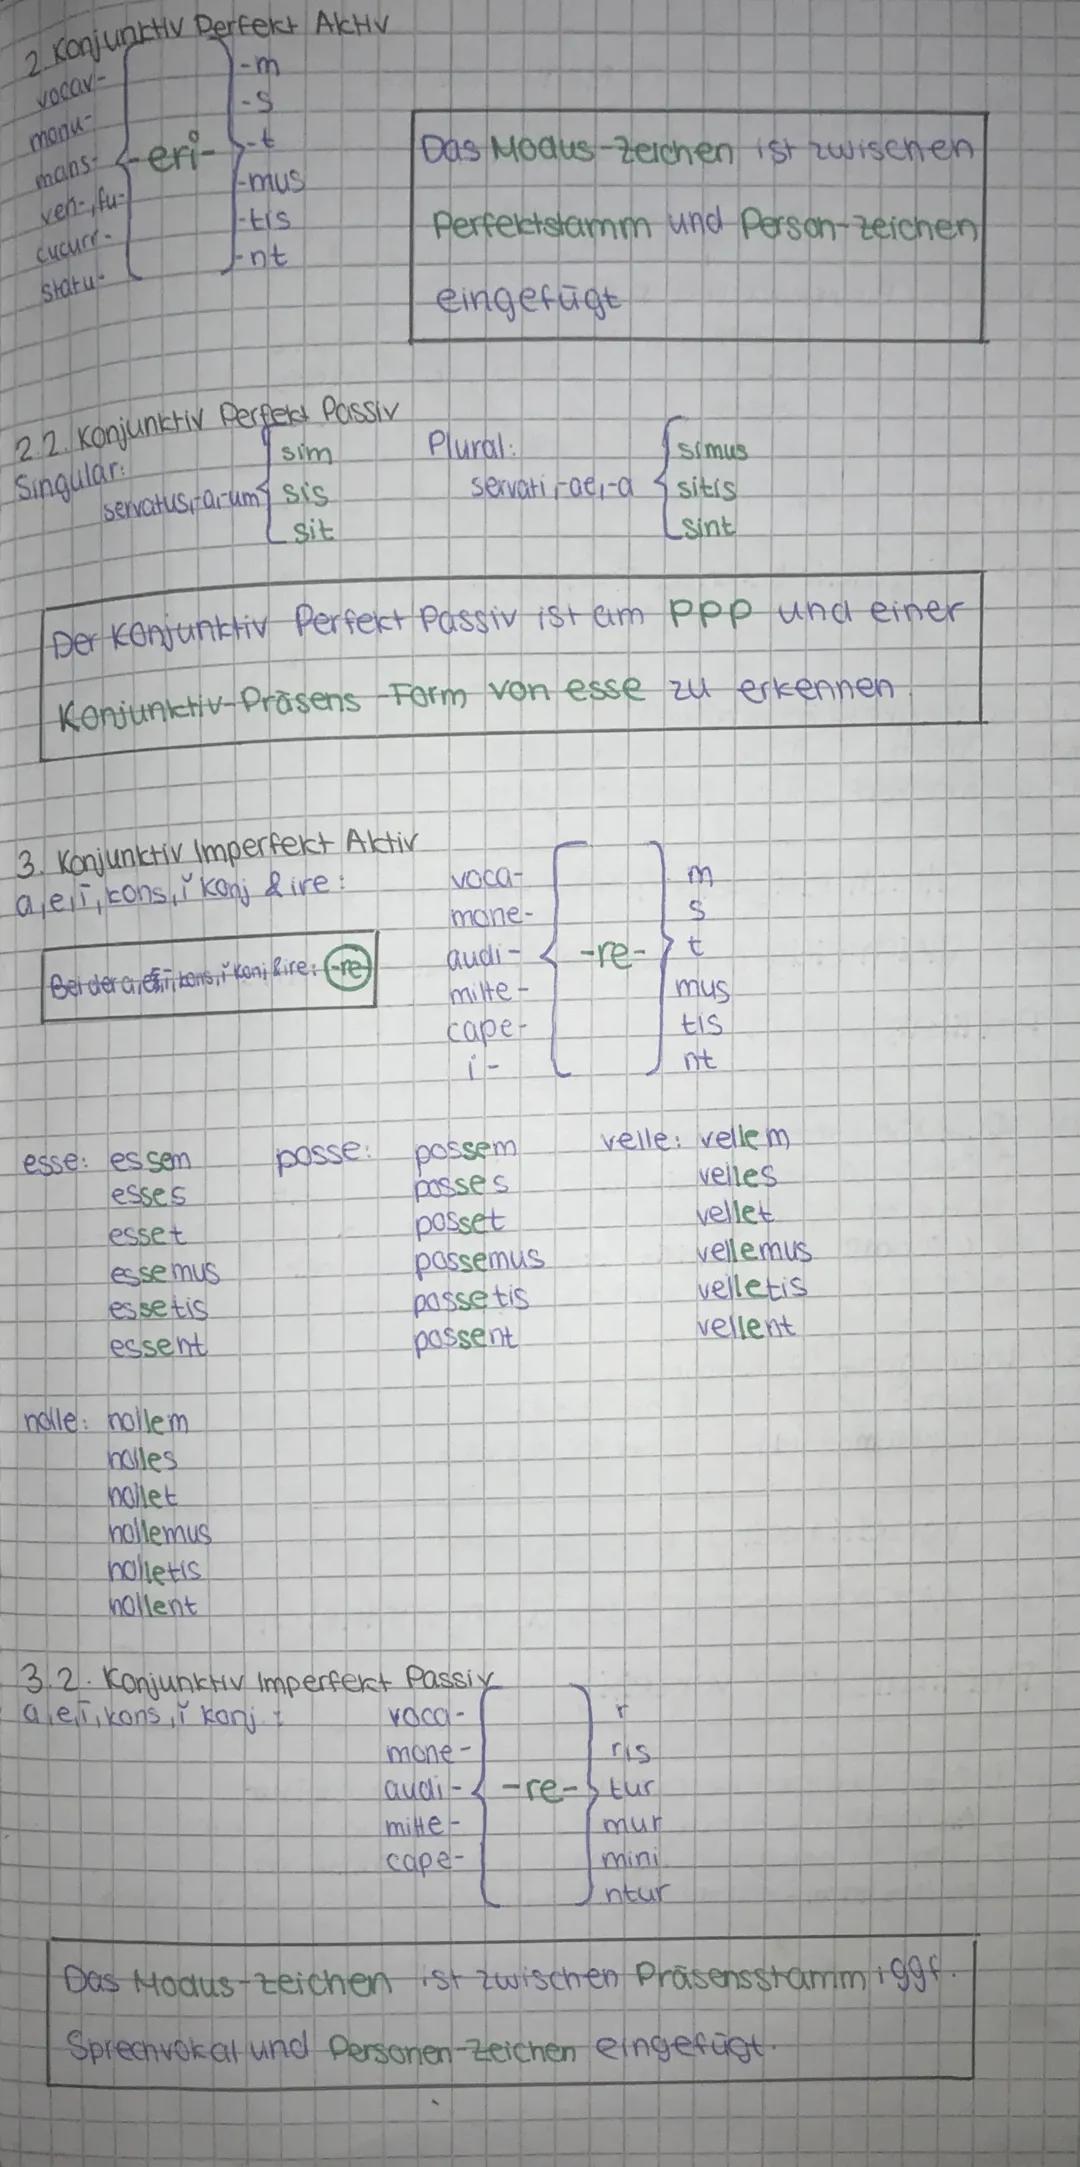 2. Konjunktiv Perfekt Aktiv
vocav-
monu-
mans-
ven-, fu-
cucurr-
statu-
-eri-
-m
-s
-t
-mus
-tis
-nt
Das Modus-Zeichen ist zwischen
Perfektstamm und Person-zeichen
eingefügt
2.2. Konjunktiv Perfekt Passiv
Singular:
servatus,-a,-um
sim
sis
sit
Plural:
servati,-ae,-a
simus
sitis
sint
Der Konjunktiv Perfekt Passiv ist am PPP und einer
Konjunktiv-Präsens-Form von esse zu erkennen
3. Konjunktiv Imperfekt Aktiv
a,e,ī,kons,ǐ konj & ire:
Bei der a,e,ī,kons,ǐ konj & ire: -re-
voca-
mone-
audi-
mitte-
cape-
i-
-re-
m
s
t
mus
tis
nt
esse: essem
esses
esset
essemus
essetis
essent
posse: possem
posses
posset
possemus
possetis
possent
velle: vellem
velles
vellet
vellemus
velletis
vellent
nolle: nollem
nolles
nollet
nollemus
nolletis
nollent
3.2. Konjunktiv Imperfekt Passiv
a,e,ī,kons,ǐ konj.:
voca-
mone-
audi-
mitte-
cape-
-re-
r
ris
tur
mur
mini
ntur
Das Modus-zeichen ist zwischen Präsensstamm, ggf.
Sprechvokal und Personen-Zeichen eingefügt.